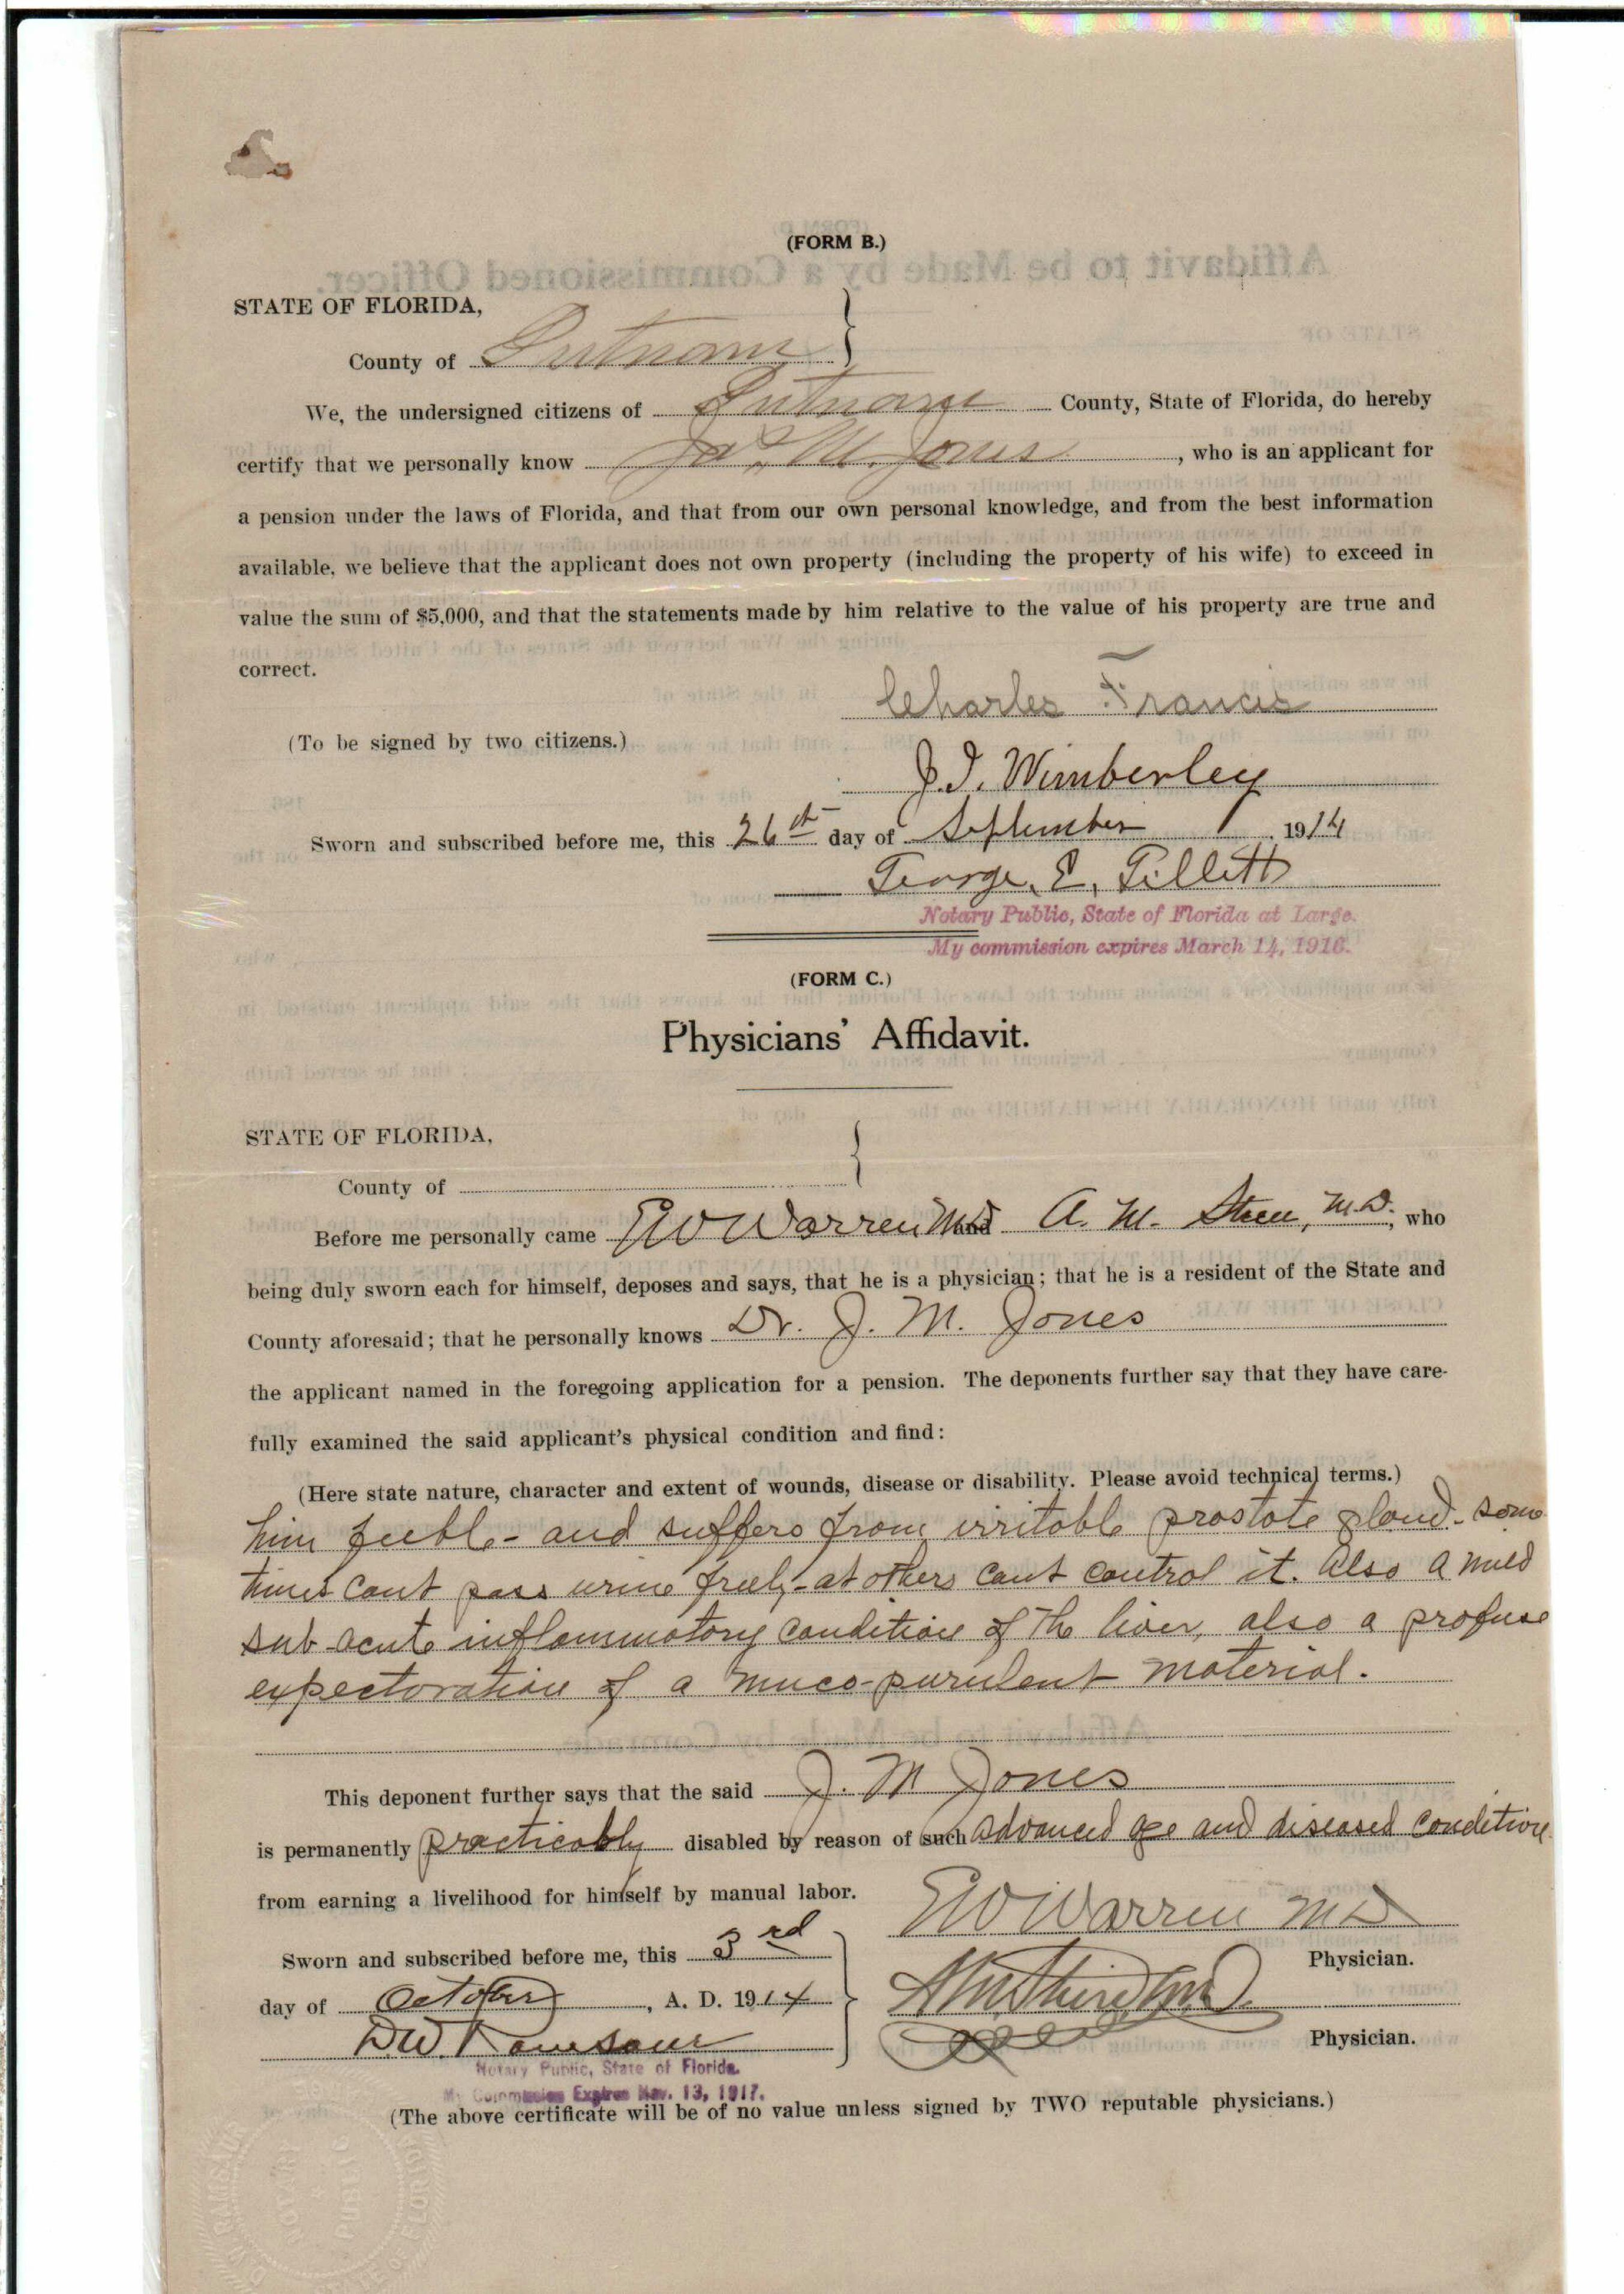 (FORM B.)
STATE OF FLORIDA,
County of Putnam
We, the undersigned citizens of Putnam County, State of Florida, do hereby
certify that we personally know Jas. M. Jones, who is an applicant for
a pension under the laws of Florida, and that from our own personal knowledge, and from the best information
available, we believe that the applicant does not own property (including the property of his wife) to exceed in
value the sum of $5,000, and that the statements made by him relative to the value of his property are true and
correct.
Charles Francis
(To be signed by two citizens.)
J. I. Wimberley
Sworn and subscribed before me, this 26th day of September 1914
George. E. Gillett
Notary Public, State of Florida at Large.
My commission expires March 14, 1916.
(FORM C.)
Physicians' Affidavit.
STATE OF FLORIDA,
County of
Before me personally came E W Warren M D and A. M. Steen, M.D., who
being duly sworn each for himself, deposes and says, that he is a physician; that he is a resident of the State and
County aforesaid; that he personally knows Dr. J. M. Jones
the applicant named in the foregoing application for a pension. The deponents further say that they have care-
fully examined the said applicant's physical condition and find:
(Here state nature, character and extent of wounds, disease or disability. Please avoid technical terms.)
him feeble - and suffers from irritable prostate gland - some
times cant pass urine freely - at others cant control it. Also a mild
sub acute inflammatory condition of the liver, also a profuse
expectoration of a muco-purulent material.
This deponent further says that the said J. M Jones
is permanently practically disabled by reason of such advanced age and diseased condition
from earning a livelihood for himself by manual labor.
E W Warren M D
Physician.
Sworn and subscribed before me, this 3rd
day of October, A. D. 1914
Physician.
D.W. Ramsaur
Notary Public, State of Florida.
My Commission Expires Nov. 13, 1917.
(The above certificate will be of no value unless signed by TWO reputable physicians.)
NOTARY PUBLIC